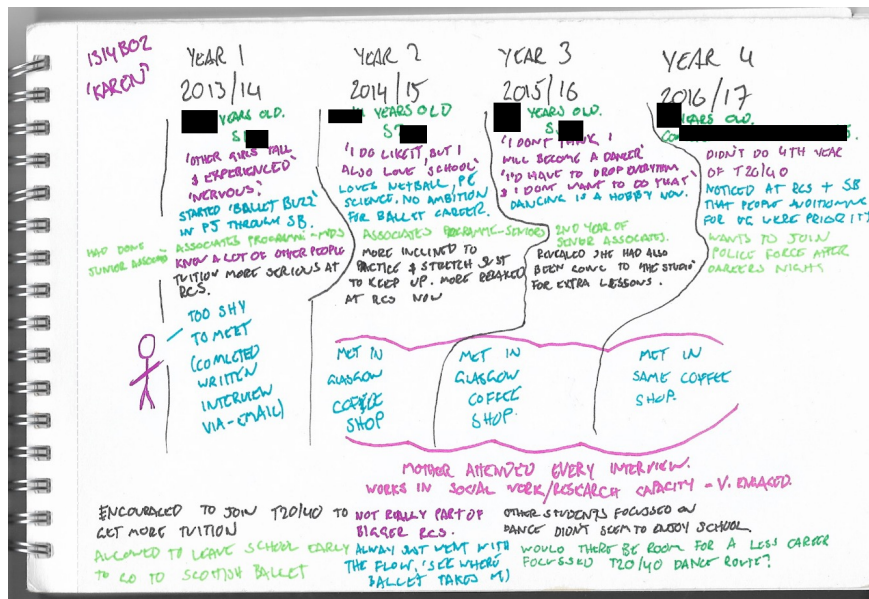 1314B02
'KAREN'
YEAR 1
2013/14
YEARS OLD.
'OTHER GIRLS TALL
& EXPERIENCED'
'NERVOUS'
STARTED 'BALLET BUZZ'
IN P5 THROUGH SB.
HAD DONE
JUNIOR ASSOCS
ASSOCIATES PROGRAMME - MIDS
KNEW A LOT OF OTHER PEOPLE
TUITION MORE SERIOUS AT
RCS.
TOO SHY
TO MEET
(COMLETED
WRITTEN
INTERVIEW
VIA-EMAIL)
YEAR 2
2014/15
YEARS OLD
'I DO LIKE IT, BUT I
ALSO LOVE SCHOOL'
LOVES NETBALL, PE
SCIENCE. NO AMBITION
FOR BALLET CAREER.
ASSOCIATES PROGRAMME-SENIORS
MORE INCLINED TO
PRACTICE & STRETCH JUST
TO KEEP UP. MORE RELAXED
AT RCS NOW
MET IN
GLASGOW
COFFEE
SHOP
YEAR 3
2015/16
YEARS OLD.
'I DONT THINK I
WILL BECOME A DANCER'
'I'D HAVE TO DROP EVERYTHING
& I DONT WANT TO DO THAT'
DANCING IS A HOBBY NOW.
2ND YEAR OF
SENIOR ASSOCIATES.
REVEALED SHE HAD ALSO
BEEN GOING TO 'THE STUDIO'
FOR EXTRA LESSONS.
MET IN
GLASGOW
COFFEE
SHOP.
YEAR 4
2016/17
YEARS OLD.
DIDN'T DO 4TH YEAR
OF T20/40
NOTICED AT RCS + SB
THAT PEOPLE AUDITIONING
FOR UG WERE PRIORITY
WANTS TO JOIN
POLICE FORCE AFTER
CAREERS NIGHT
MET IN
SAME COFFEE
SHOP.
MOTHER ATTENDED EVERY INTERVIEW.
WORKS IN SOCIAL WORK/RESEARCH CAPACITY - V. ENGAGED.
ENCOURAGED TO JOIN T20/40 TO
GET MORE TUITION
ALLOWED TO LEAVE SCHOOL EARLY
TO GO TO SCOTTISH BALLET
NOT REALLY PART OF
BIGGER RCS.
ALWAYS JUST WENT WITH
THE FLOW. 'SEE WHERE
BALLET TAKES ME)
OTHER STUDENTS FOCUSSED ON
DANCE DIDN'T SEEM TO ENJOY SCHOOL.
WOULD THERE BE ROOM FOR A LESS CAREER
FOCUSSED T20/40 DANCE ROUTE?